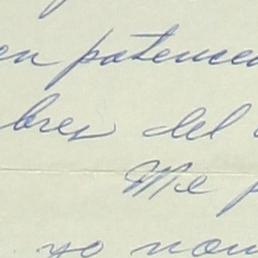 en patence
bres del
Me p
yo nom